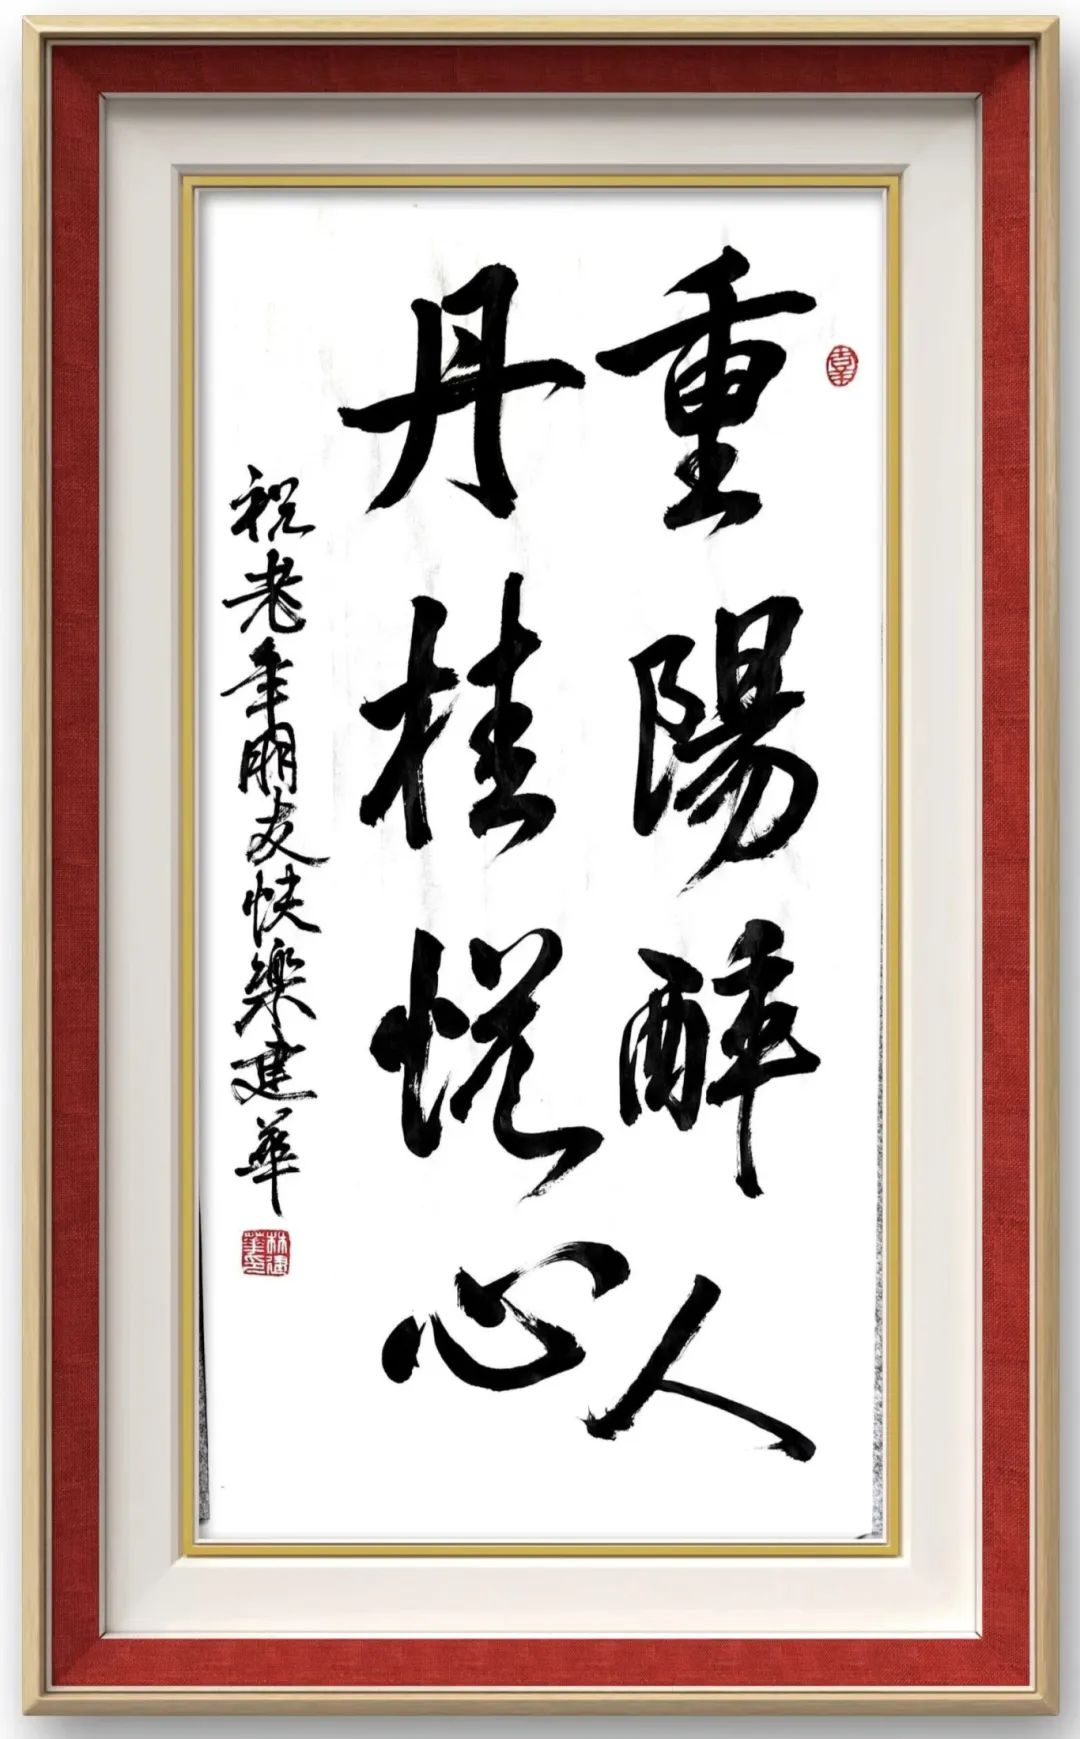 重陽醉人
丹桂悦心
祝老年朋友快樂建華
林建華印